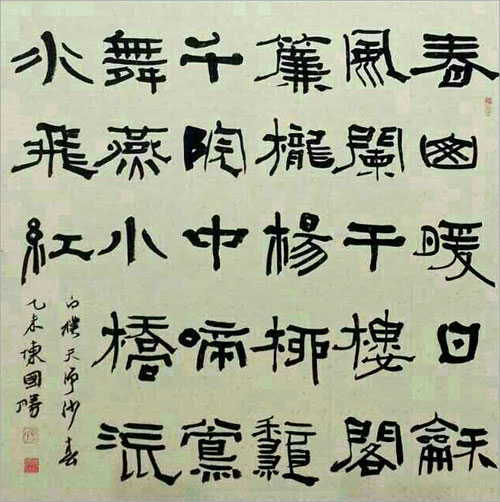 春山暖日龢
風闌干樓閣
簾櫳楊柳龝
千院中啼鶯
舞燕小橋流
水飛紅
白樸天淨沙春
乙未陳國勝